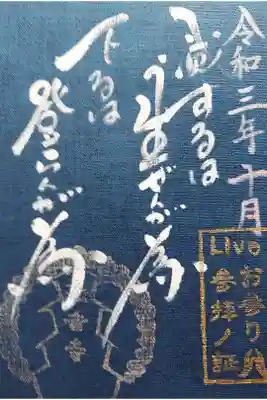 令和三年十月
するは
生ぜんが為
下るは
登らんが為
Liveお参り
参拝ノ証